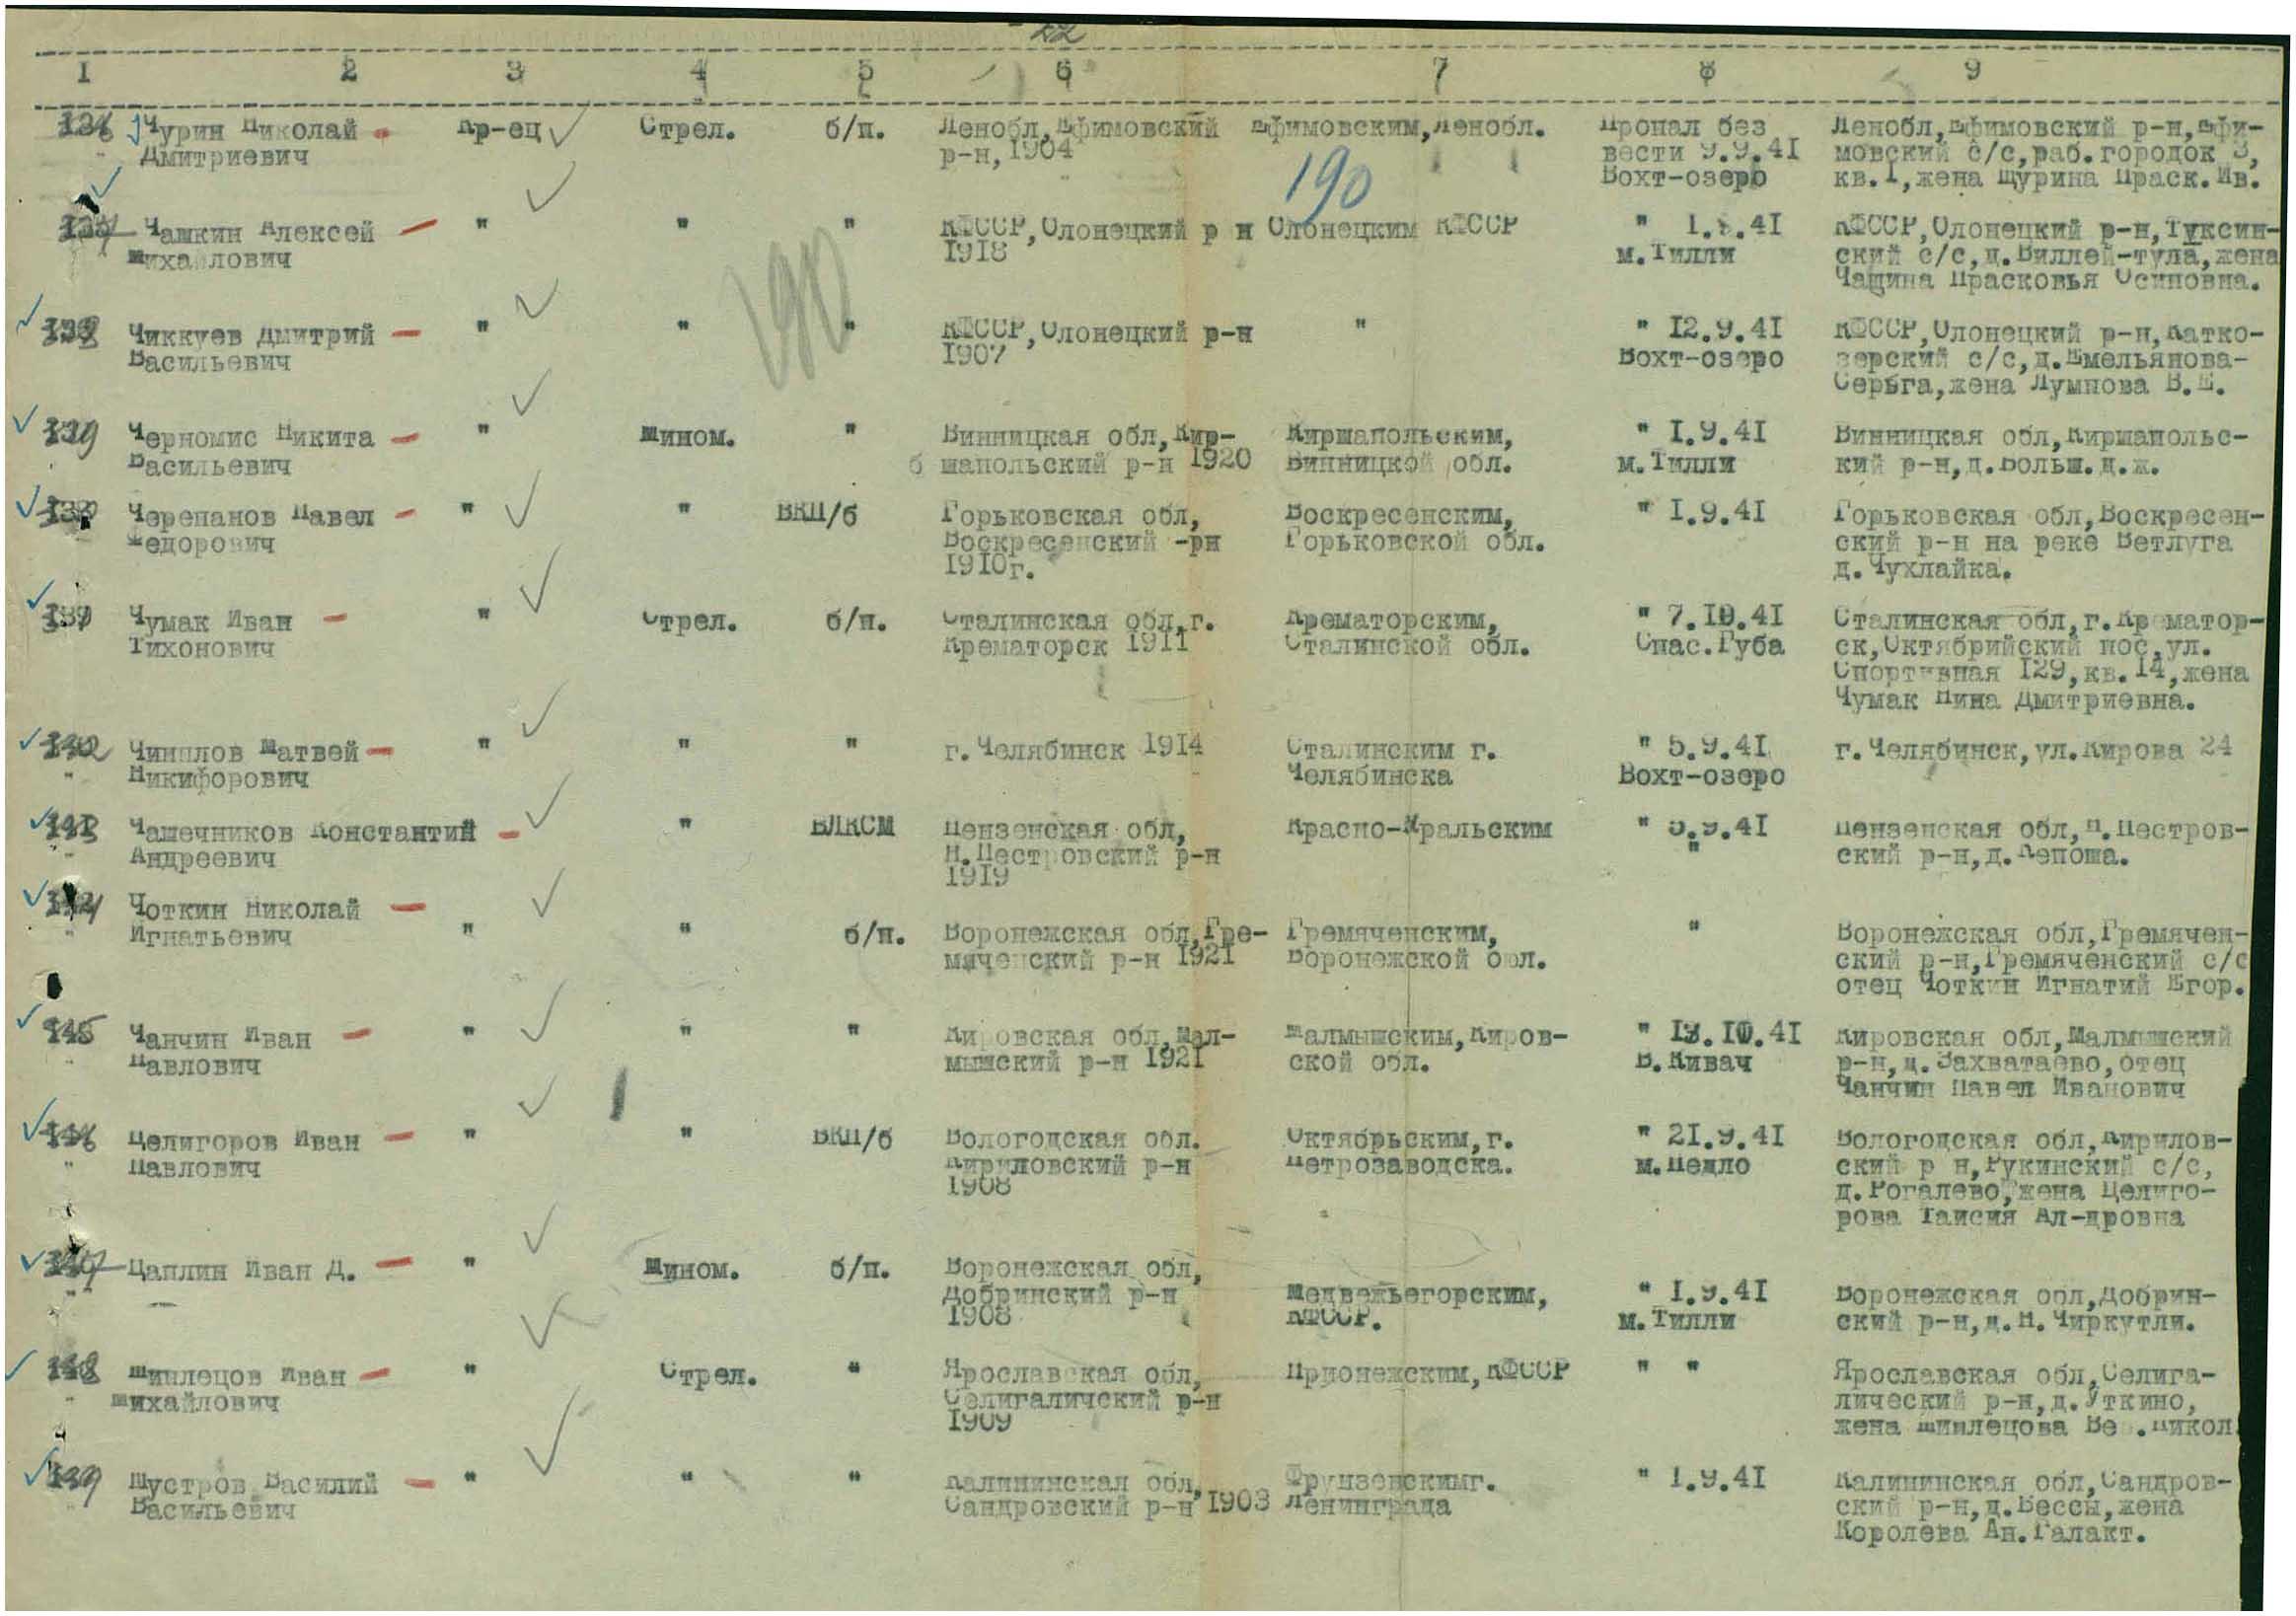 22
1 2 3 4 5 6 7 8 9
Чурин Николай Кр-ец Стрел. б/п. Ленобл,Ефимовский Ефимовским,Ленобл. Пропал без Ленобл,Ефимовский р-н,Ефи-
Дмитриевич р-н,1904 вести 9.9.41 мовский с/с,раб.городок 3,
190 Вохт-озеро кв.I,жена Щурина Праск.Ив.
Чашкин Алексей " " " КФССР,Олонецкий р н Олонецким КФССР " КФССР,Олонецкий р-н,Туксин-
Михайлович 1918 м.Тилли ский с/с,д.Виллей-тула,жена
190 Чащина Прасковья Осиповна.
Чиккуев Дмитрий " " " КФССР,Олонецкий р-н " " 12.9.41 КФССР,Олонецкий р-н,Катко-
Васильевич 1907 Вохт-озеро зерский с/с,д.Емельянова-
Серьга,жена Лумпова В.Е.
139 Черномис Никита " Мином. " Винницкая обл,Кир- Киршапольским, " I.9.41 Винницкая обл,Киршапольс-
Васильевич б шапольский р-н 1920 Винницкой обл. м.Тилли кий р-н,д.Больш.д.ж.
Черепанов Павел " " ВКП/б Горьковская обл, Воскресенским, " I.9.41 Горьковская обл,Воскресен-
Федорович Воскресенский -рн Горьковской обл. ский р-н на реке Ветлуга
1910г. д.Чухлайка.
Чумак Иван " Стрел. б/п. Сталинская обл,г. Крематорским, " 7.10.41 Сталинская обл,г.Крематор-
Тихонович Крематорск 1911 Сталинской обл. Спас.Губа ск,Октябрийский пос,ул.
Спортивная I29,кв.14,жена
Чумак Нина Дмитриевна.
Чиплов Матвей " " " г.Челябинск 1914 Сталинским г. " 5.9.41 г.Челябинск,ул.Кирова 24
" Никифорович Челябинска Вохт-озеро
Чашечников Константин " ВЛКСМ Пензенская обл, Красно-Уральским " 5.9.41 Пензенская обл,Н.Пестров-
" Андреевич Н.Пестровский р-н " ский р-н,д.Лепоша.
1919
Чоткин Николай
" Игнатьевич " " б/п. Воронежская обл,Гре- Гремяченским, " Воронежская обл,Гремячен-
мяченский р-н 1921 Воронежской обл. ский р-н,Гремяченский с/с
отец Чоткин Игнатий Егор.
145 Чанчин Иван " " " Кировская обл,Мал- Малмышским,Киров- " 13.10.41 Кировская обл,Малмышский
" Павлович мышский р-н 1921 ской обл. В.Кивач р-н,д.Захватаево,отец
Чанчин Павел Иванович
146 Целигоров Иван " " ВКП/б Вологодская обл. Октябрьским,г. " 21.9.41 Вологодская обл,Кирилов-
" Павлович Кириловский р-н Петрозаводска. м.Педло ский р н,Рукинский с/с,
1908 д.Рогалево,жена Целиго-
рова Таисия Ал-дровна
147 Цаплин Иван Д. " Мином. б/п. Воронежская обл,
" Добринский р-н Медвежьегорским, " I.9.41 Воронежская обл,Добрин-
1908 КФССР. м.Тилли ский р-н,д.Н.Чиркутли.
148 Шиплецов Иван " Стрел. " Ярославская обл, Прионежским,КФССР " " Ярославская обл,Селига-
" Михайлович Селигаличский р-н лический р-н,д.Уткино,
1909 жена Шиплецова Ве .Никол.
Шустров Василий " " " Калининская обл, Фрунзевскимг. " 1.9.41 Калининская обл,Сандров-
" Васильевич Сандровский р-н 1903 Ленинграда ский р-н,д.Бессы,жена
Королева Ан.Галакт.